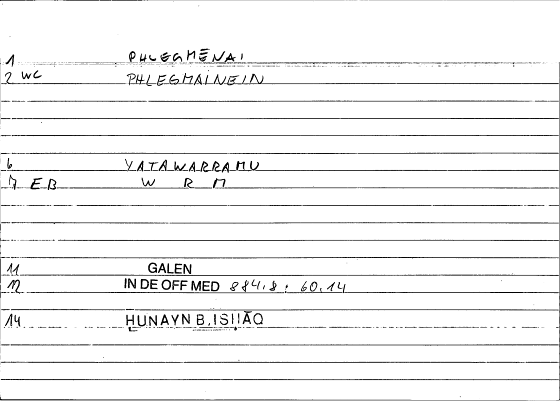 1 PHLEGMĒNAI
2 WC PHLEGMAINEIN
6 YATAWARRAMU
7 EB W R M
11 GALEN
12 IN DE OFF MED 884.8 : 60.14
14 ḤUNAYN B.ISḤĀQ